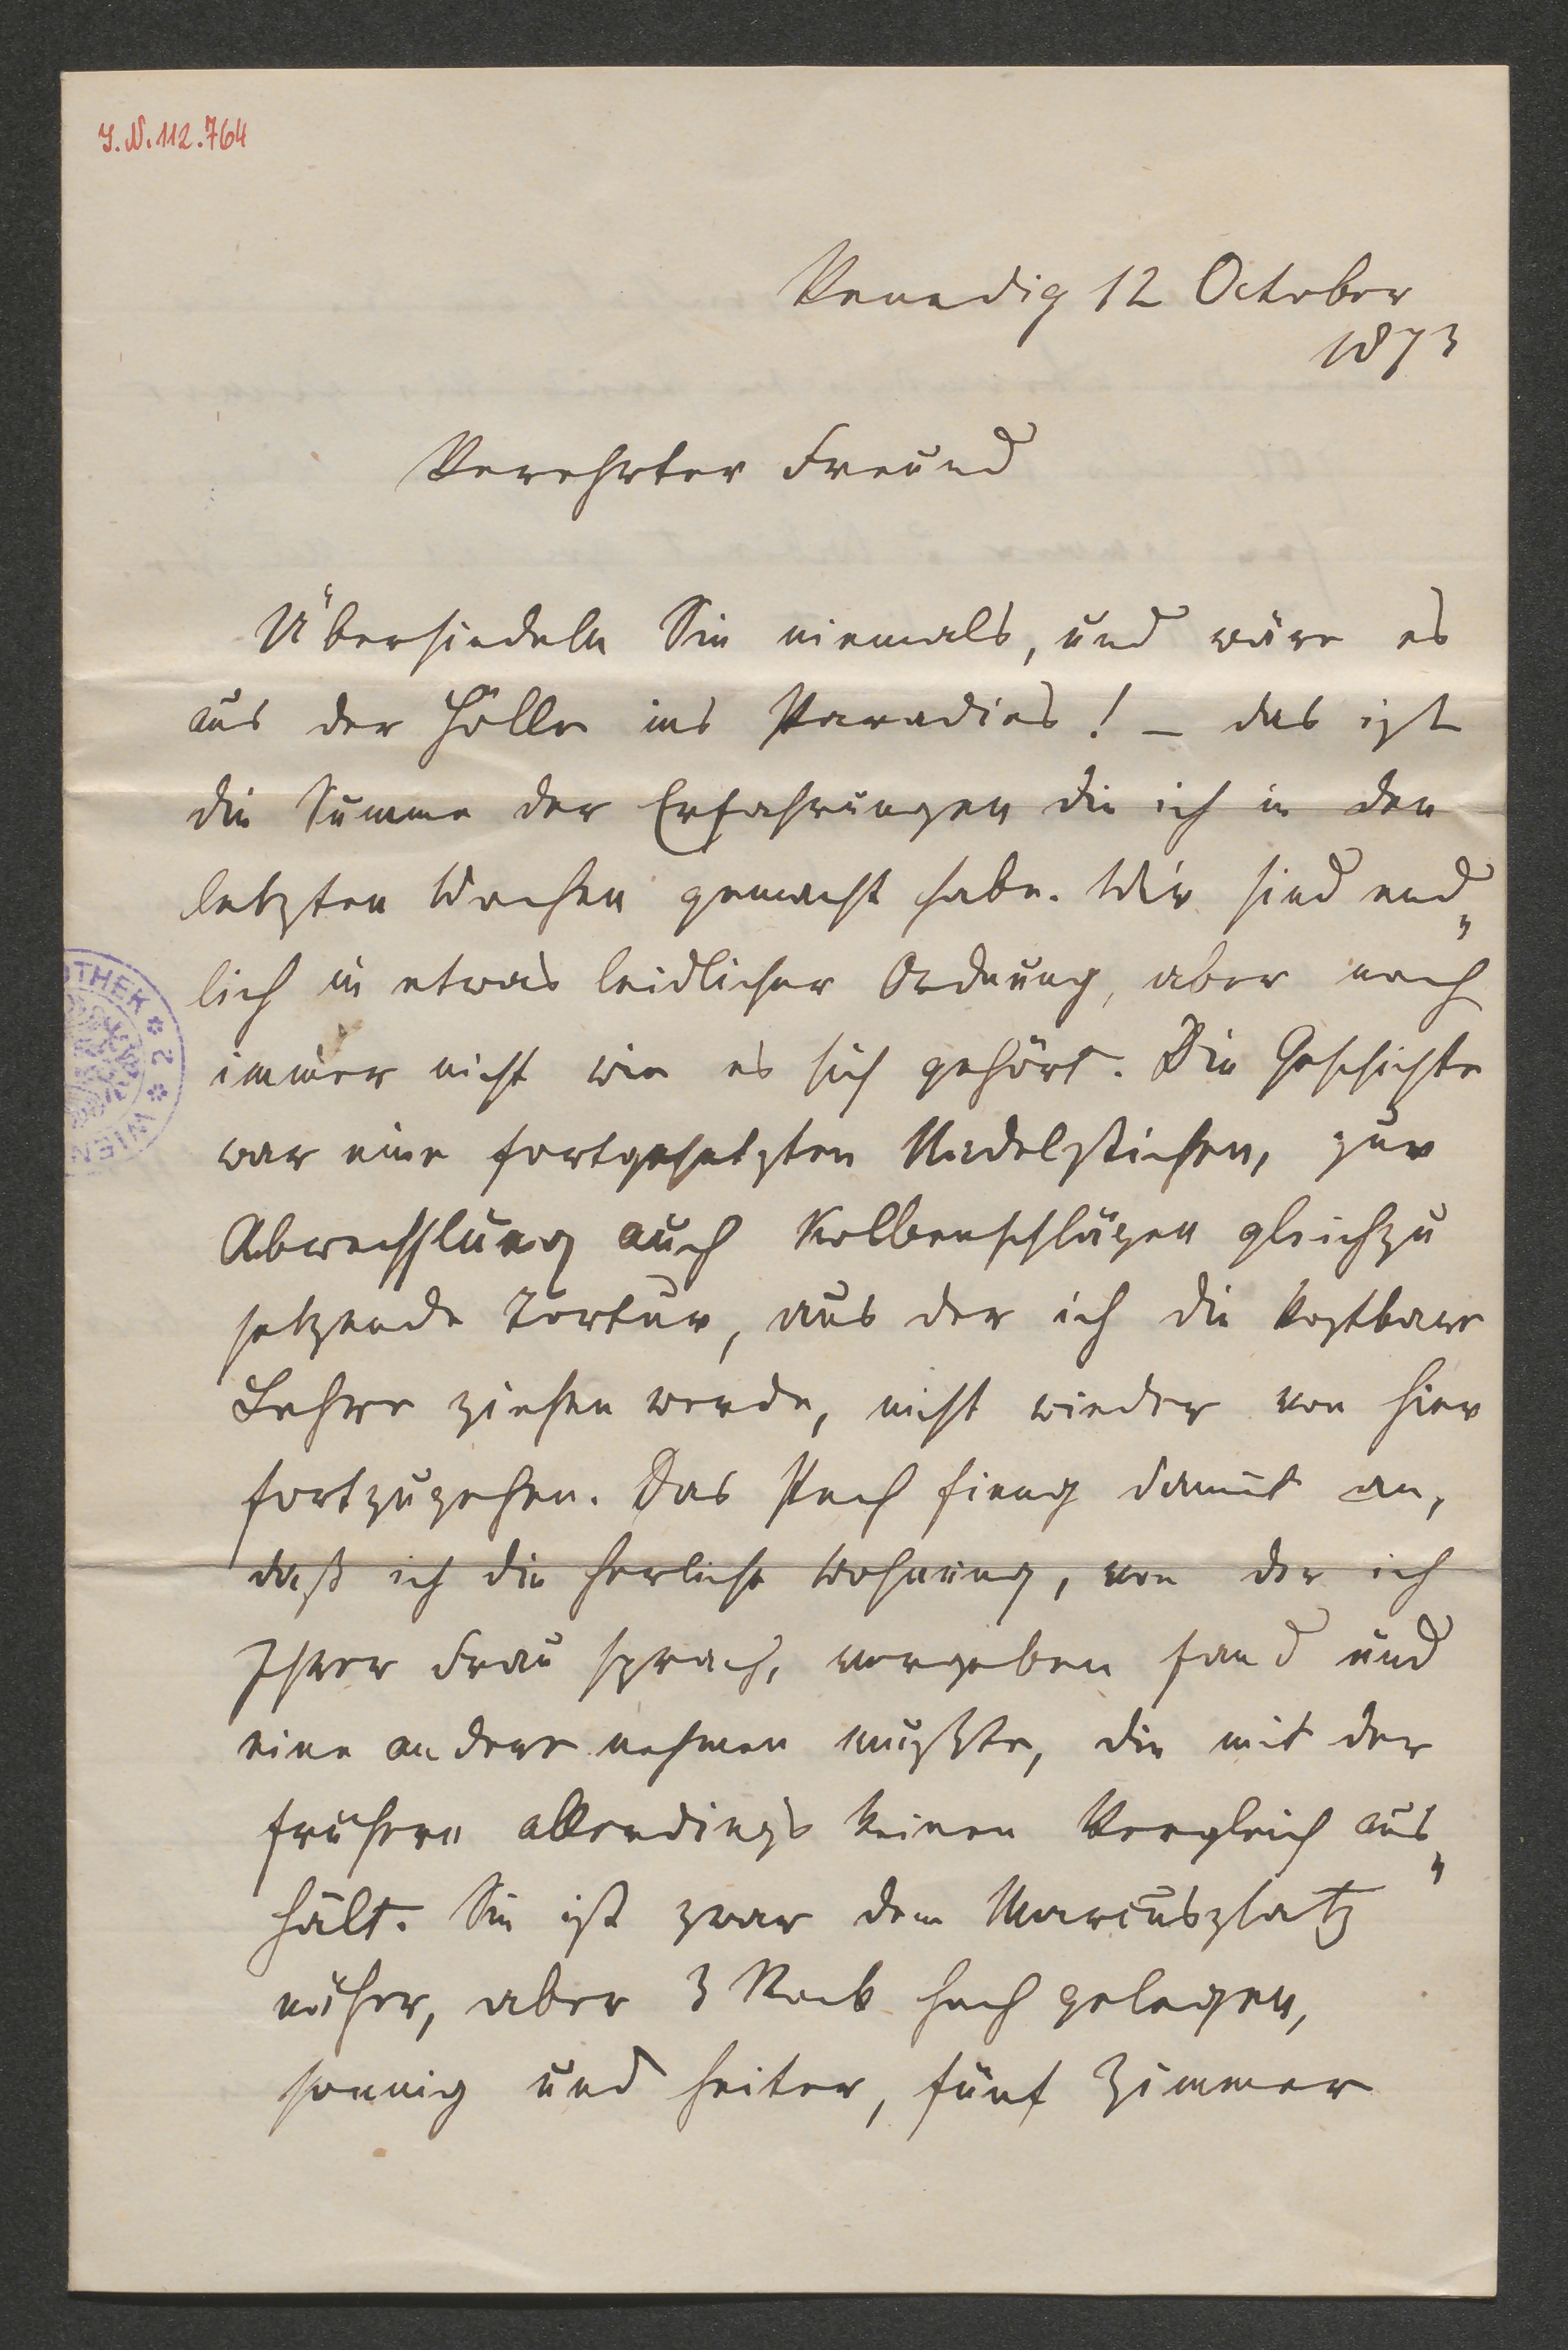 J.N. 112.764
Venedig 12 October
1873
Verehrter Freund
Übersiedeln Sie niemals, und wäre es
aus der Hölle ins Paradies! – das ist
die Summe der Erfahrungen die ich in den
letzten Wochen gemacht habe. Wir sind end„
lich in etwas leidlicher Ordnung, aber noch
immer nicht wie es sich gehört. Die Geschichte
war eine fortgesetzten Nadelstichen, zur
Abwechslung auch Kolbenschlägen gleichzu
setzende Tortur, aus der ich die kostbare
Lehre ziehen werde, nicht wieder von hier
fortzugehen. Das Pech fieng damit an,
daß ich die herliche Wohnung, von der ich
Ihrer Frau sprach, vergeben fand und
eine andere nehmen mußte, die mit der
frühern allerdings keinen Vergleich aus„
hält. Sie ist zwar dem Marcusplatz
näher, aber 3 Stock hoch gelegen,
sonnig und heiter, fünf Zimmer
OTHEK * 2 * WIEN